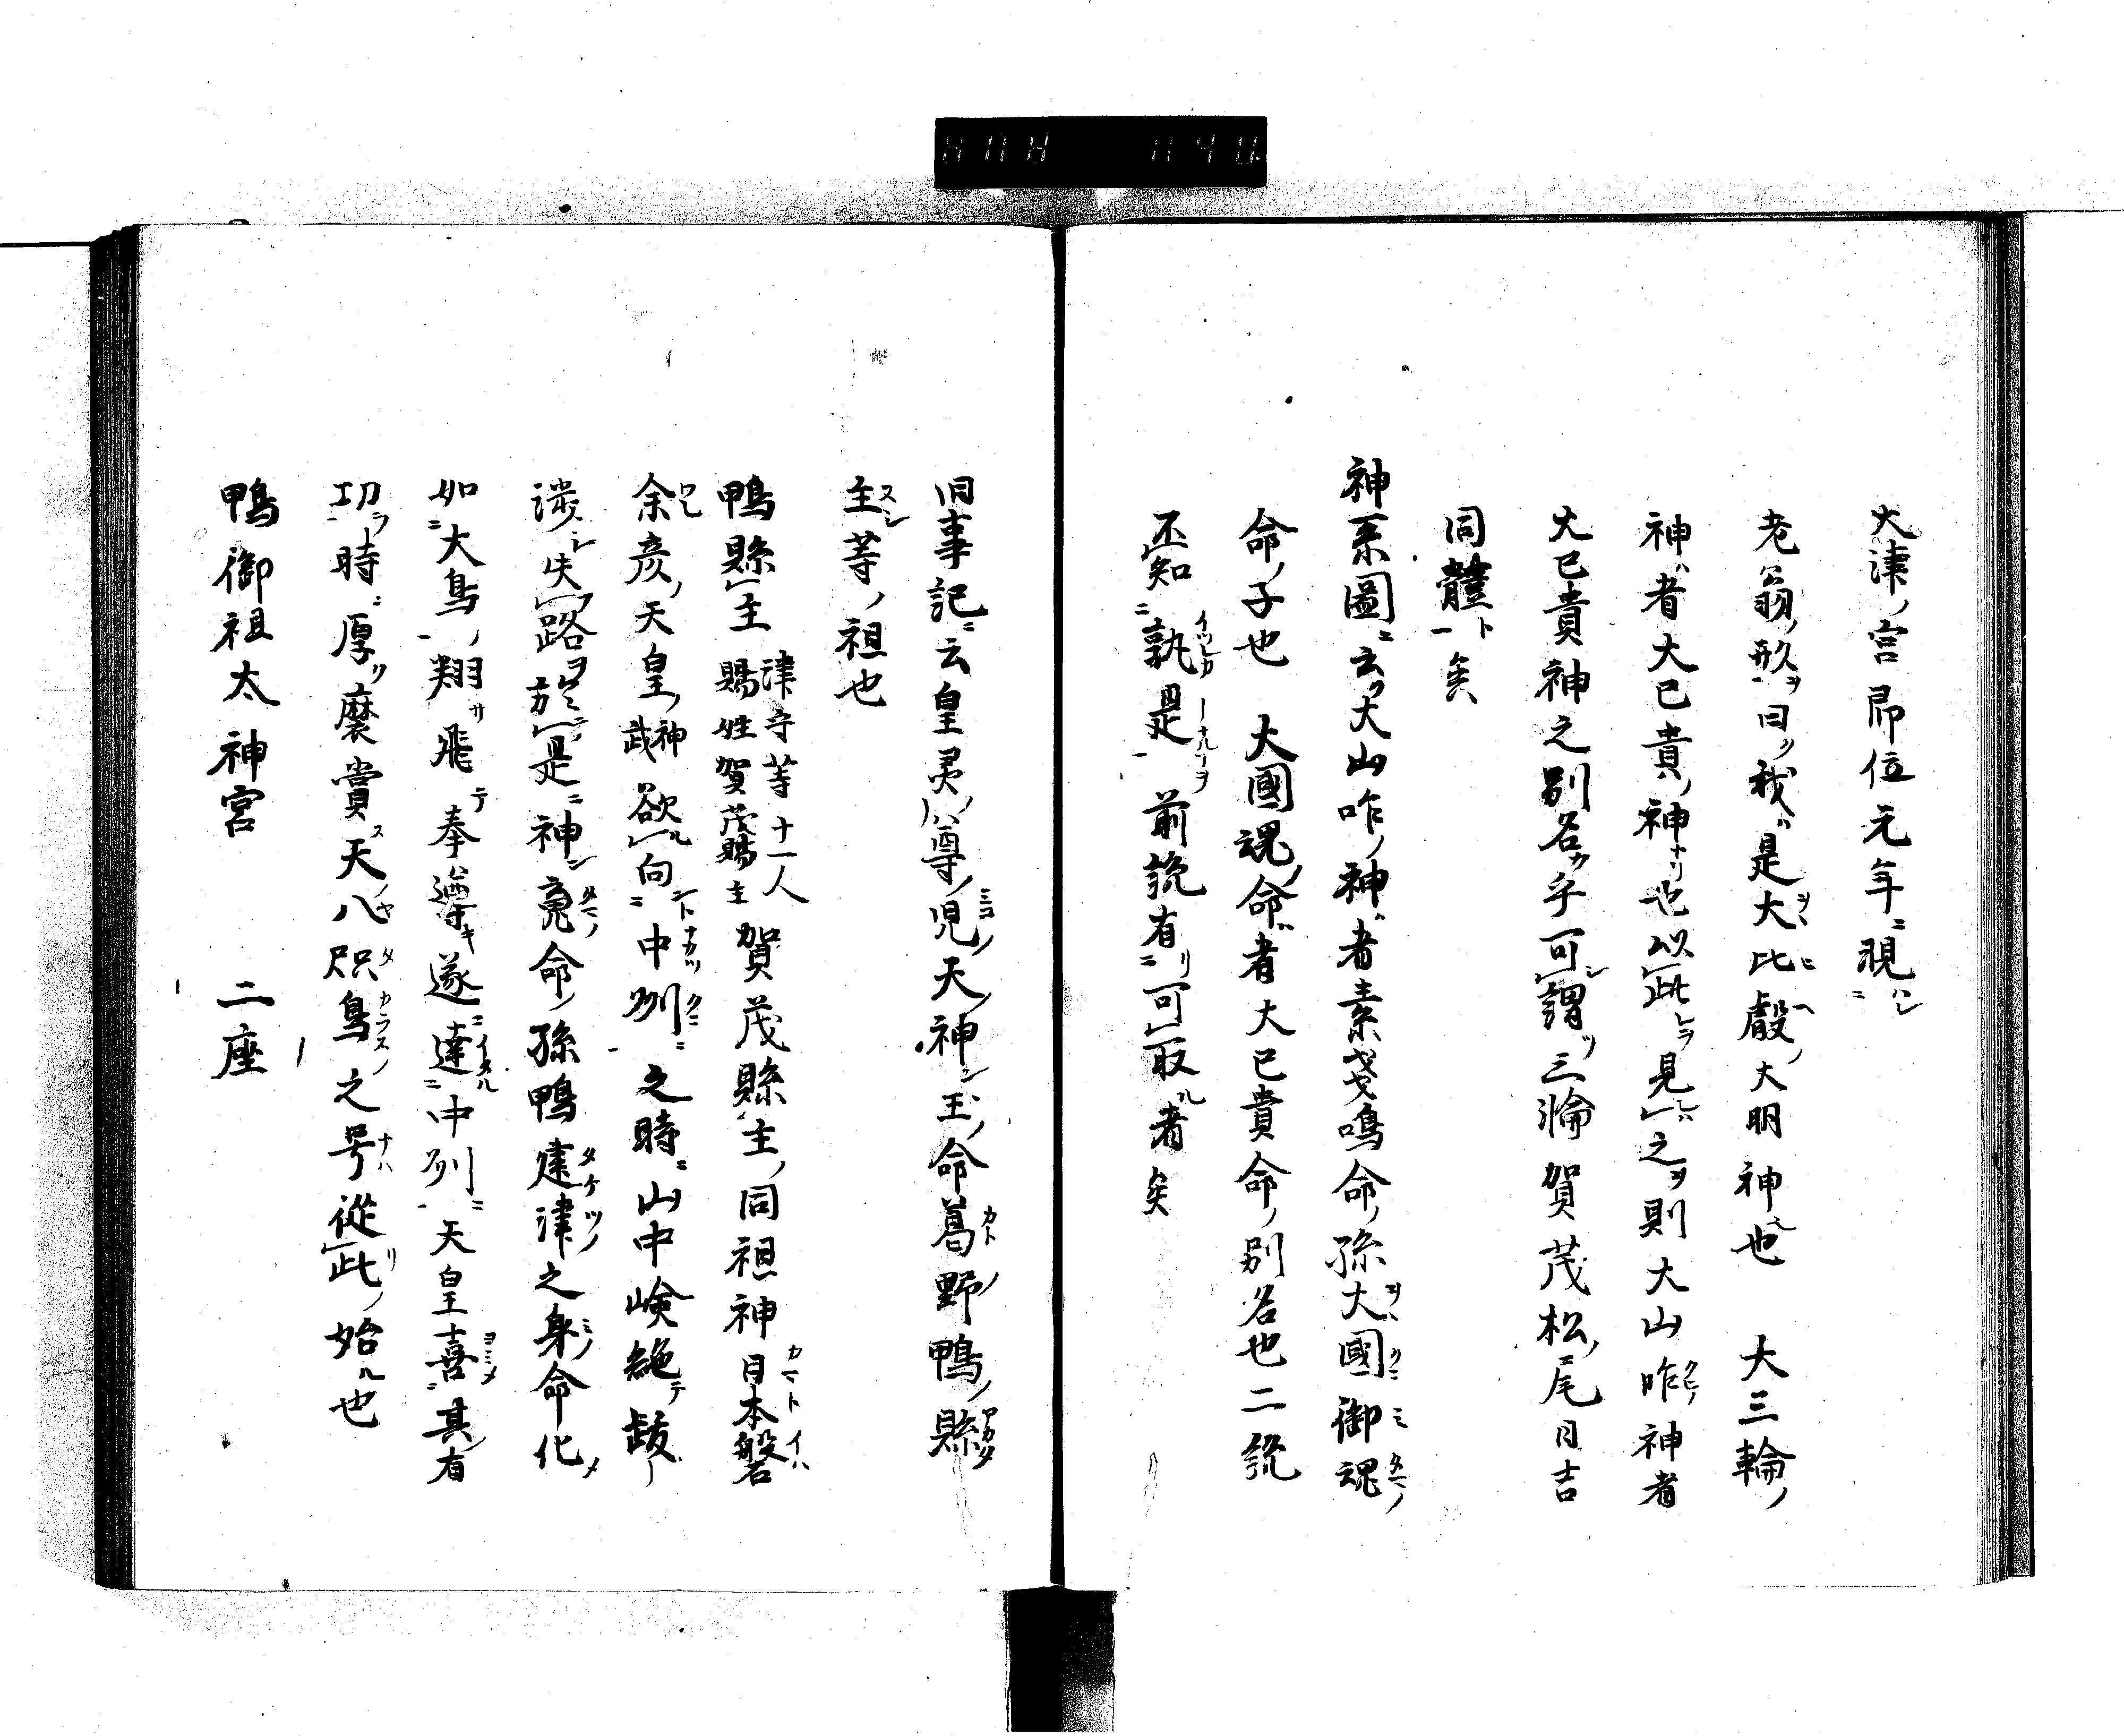 大津ノ宮即位元年ニ現ハシ
老翁ノ形ヲ曰ク我ハ是大比叡ノ大明神也 大三輪ノ
神ハ者大已貴ノ神ナリ也以此ヲ見之ヲ則大山咋神者
大已貴神之別名カ乎可謂ツ三輪賀茂松ノ尾日吉
同體ト矣
神系圖ニ云ク大山咋ノ神ハ者素戔鳴命ノ孫大國御魂
命ノ子也 大國魂ノ命ハ者大已貴命ノ別名也二説
不知孰是前説有リ可取ル者矣
旧事記ニ云皇灵ノ尊ノ児天ノ神玉ノ命葛野鴨ノ縣
主等ノ祖也
鴨縣主 津守等十一人賜姓賀茂縣主 賀茂縣主ノ同祖神日本磐
余彦ノ天皇神武欲向中洲ニ之時ニ山中嶮絶テ跋
渉シ失路ヲ於是ニ神魂命ノ孫鴨建津之身ノ命化
如大鳥ノ翔飛テ奉導キ遂ニ達中列ニ天皇喜其有
功時ニ厚ク褒賞ス天ノ八咫烏之号ハ從此リ始ル也
鴨御祖太神宮 二座